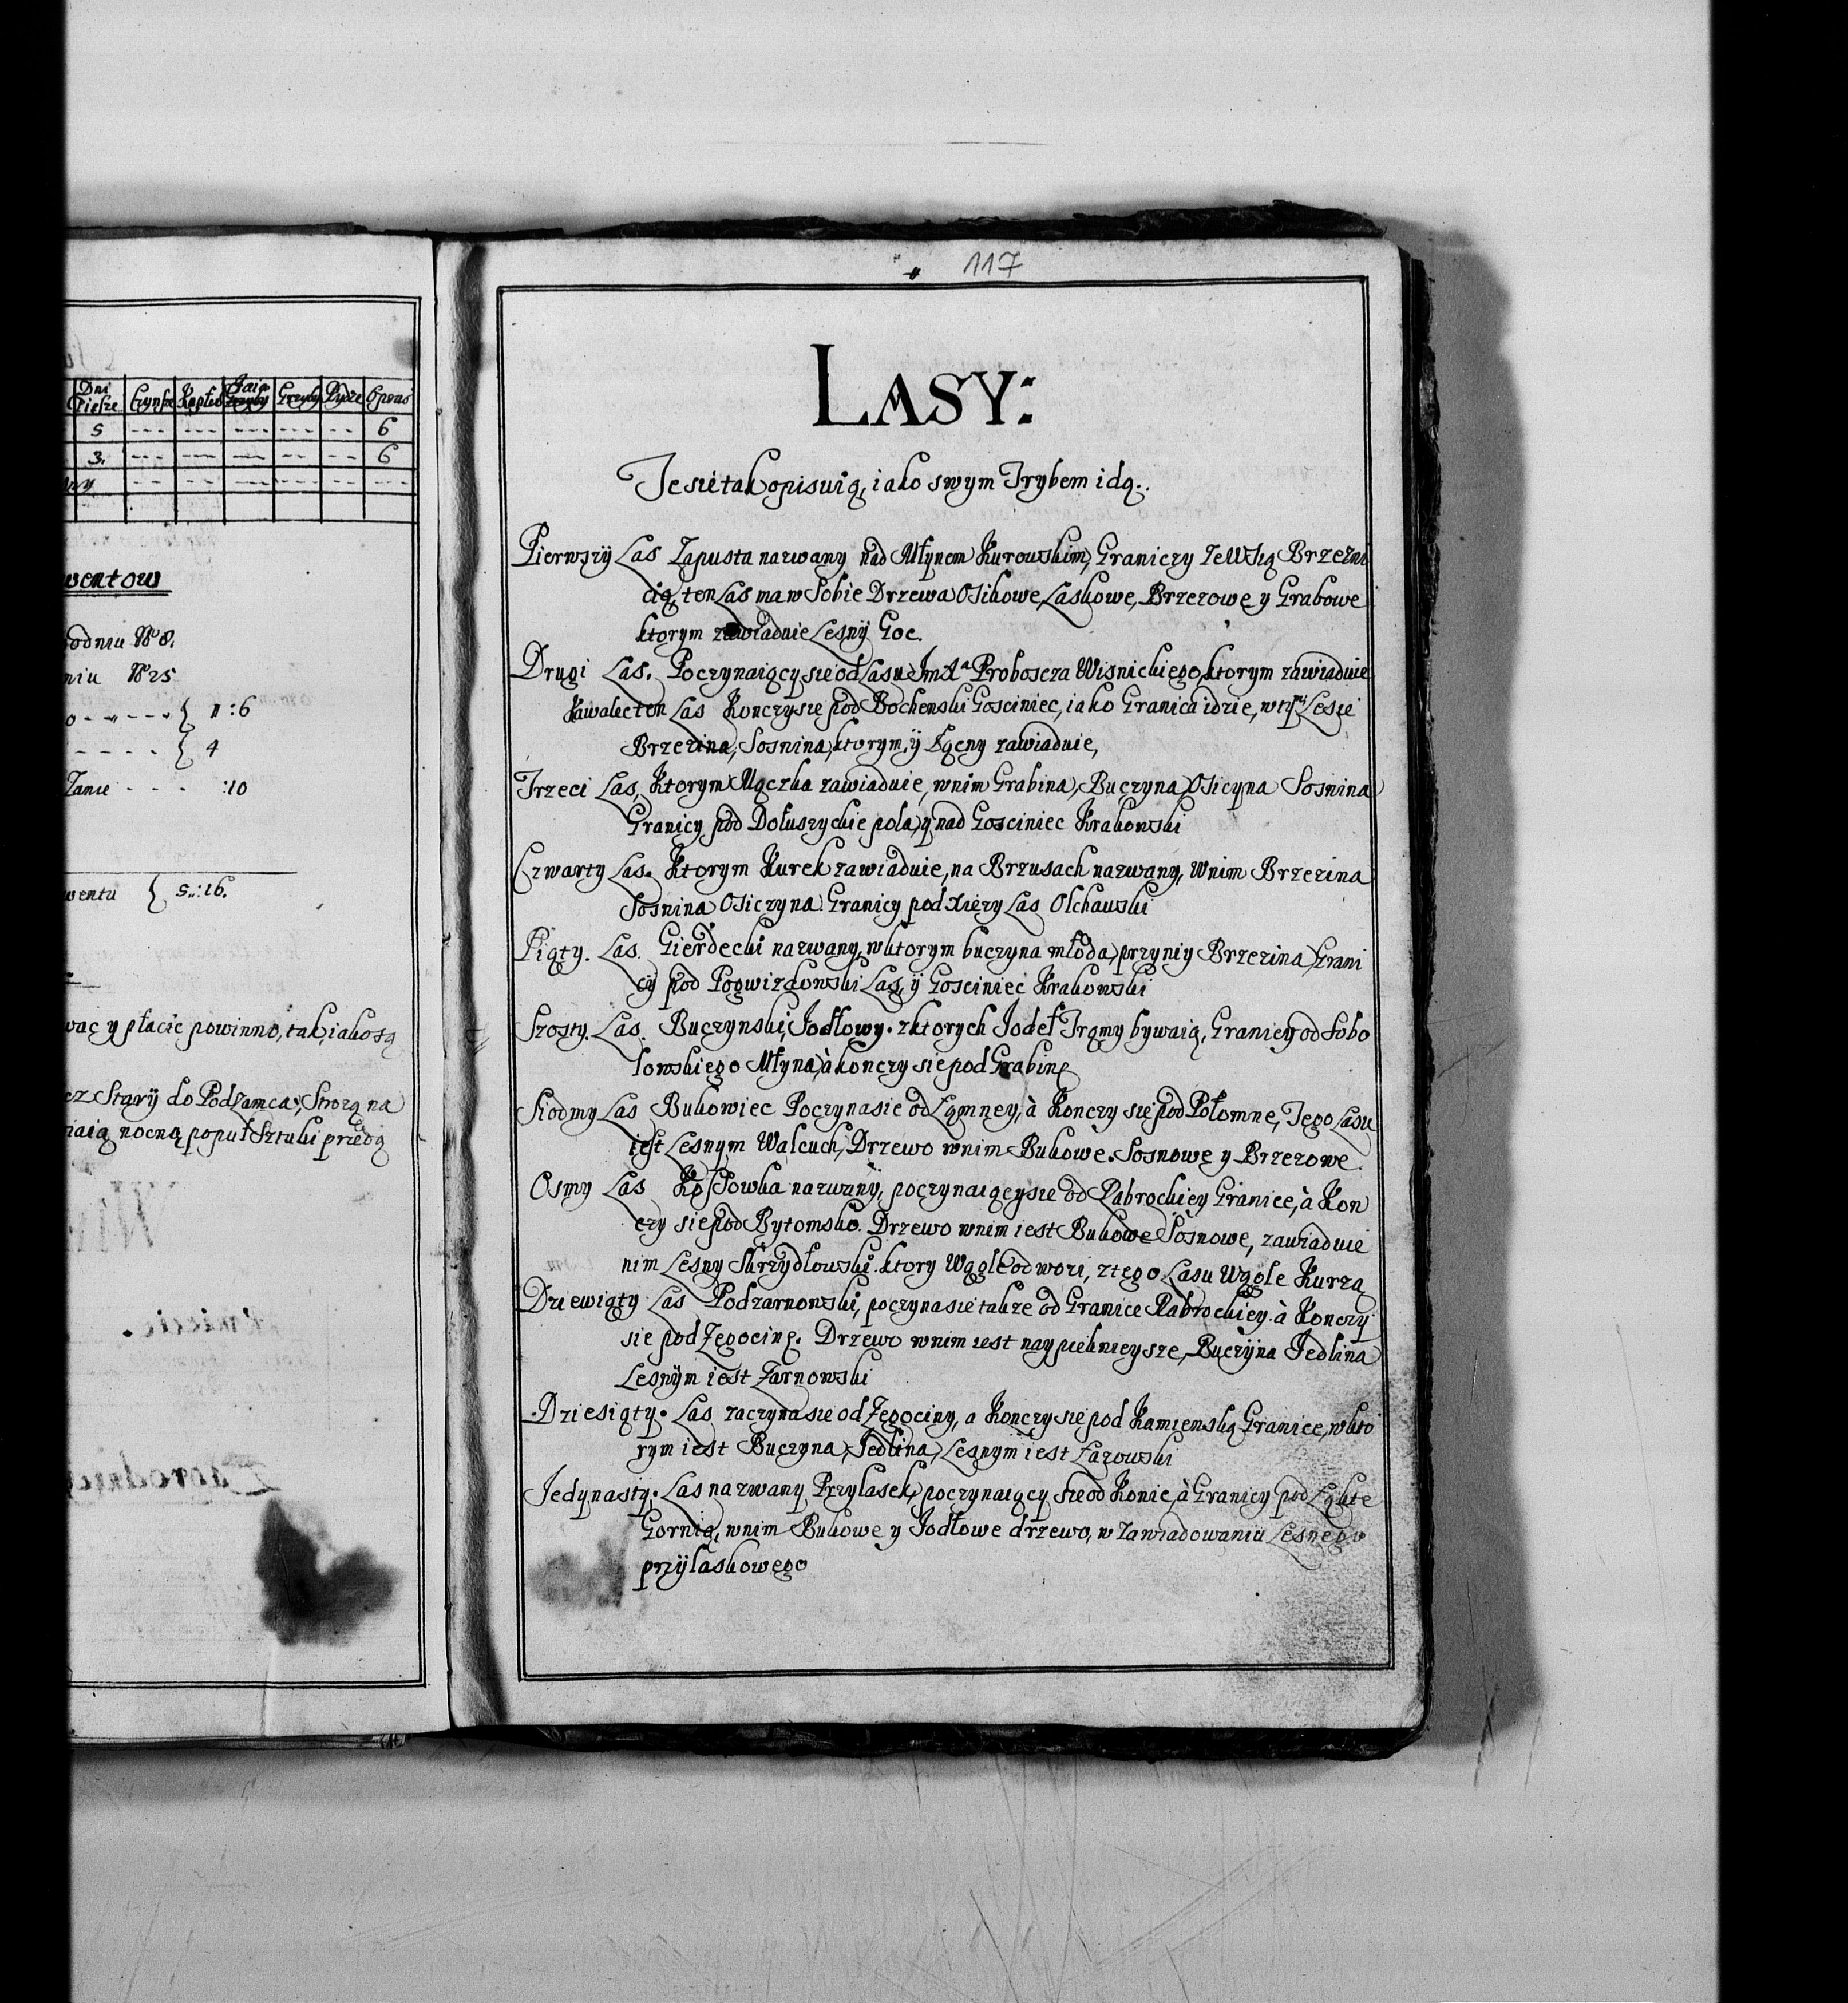 Dni Piesze Czynsz Kapłon Jaia Grzyby Grzyby Rydze Oprawo
5 6
3. 6
wentow
godniu No 8.
niu No 25
:6
4
Zanie :10
wentu 5.:16.
wac y płacic powinno, tak, iako są
ez Stary do Podzamca, Strozą na
maią nocną, popuł Sztuki przedą
117
LASY:
Te sie tak opisuią, iako swym Trybem idą.
Pierwszÿ Las Zapusta nazwany nad Młynem Kurowskim, Graniczy ze Wsią Brzezni
cią, ten Las ma w Sobie Drzewa Osikowe, Laskowe, Brzezowe y Grabowe
ktorym zawiaduie Lesnÿ Goc.
Drugi Las. Poczynaiący sie od Lasu Jmxa Proboscza Wisnickiego, ktorym zawiaduie
kawalec ten Las Konczy sie pod Bochenski Gosciniec, iako Granica idzie, w tym Lesie
Brzezina, Sosnina, ktorym, ÿ Łączny zawiaduie,
Trzeci Las, Ktorym Mączka zawiaduie, w nim Grabina, Buczyna, Osicyna Sosnina
Granicy pod Dołuszyckie pola, y nad Gosciniec Krakowski
Czwarty Las. Ktorym Kurek zawiaduie, na Brzusach nazwany, w nim Brzezina
Sosnina Osiczyna Granicy pod Xiezy Las Olchawski
Piąty. Las. Gierdecki nazwany, w ktorym buczyna młoda, przy niy Brzezina, Grani
cy pod Pogwizdowski Las, ÿ Gosciniec Krakowski
Szosty. Las. Buczynski, Jodłowy. z ktorych Jodeł Tramy bywaią, Granicy od Sobo
lowskiego Młyna, à konczy sie pod Grabinę
Siodmy Las Bukowiec Poczyna sie od Łąmney, à Konczy sie pod Połomne, Tego Lasu
iest Lesnym Walcuch, Drzewo w nim Bukowe. Sosnowe y Brzezowe.
Osmy Las Kosłowka nazwanÿ, poczynaiący sie od Rabrockiey Granice, à Kon
czy sie pod Bytomsko. Drzewo w nim iest Bukowe Sosnowe, zawiaduie
nim Lesny Skrzydłowski. ktory Wągle odwozi, z tego Lasu Wągle Kurzą
Dziewiąty Las Podzarnowski, poczyna sie takze od Granice Rabrockiey. à Konczÿ
sie pod Zegocinę. Drzewo w nim iest naypieknieysze, Buczÿna Jedlina
Lesnÿm iest Zarnowski
Dziesiąty. Las zaczyna sie od Zegociny, a Konczy sie pod Kamienską Granice, w kto
rym iest Buczyna, Jedlina, Lesnym iest Łazowski
Jedynasty. Las nazwany Przylasek, poczynaiący sie od Konic, à Granicy pod Łąkte
Gornią, w nim Bukowe y Jodłowe drzewo, w Zawiadowaniu Lesnego
przÿlaskowego